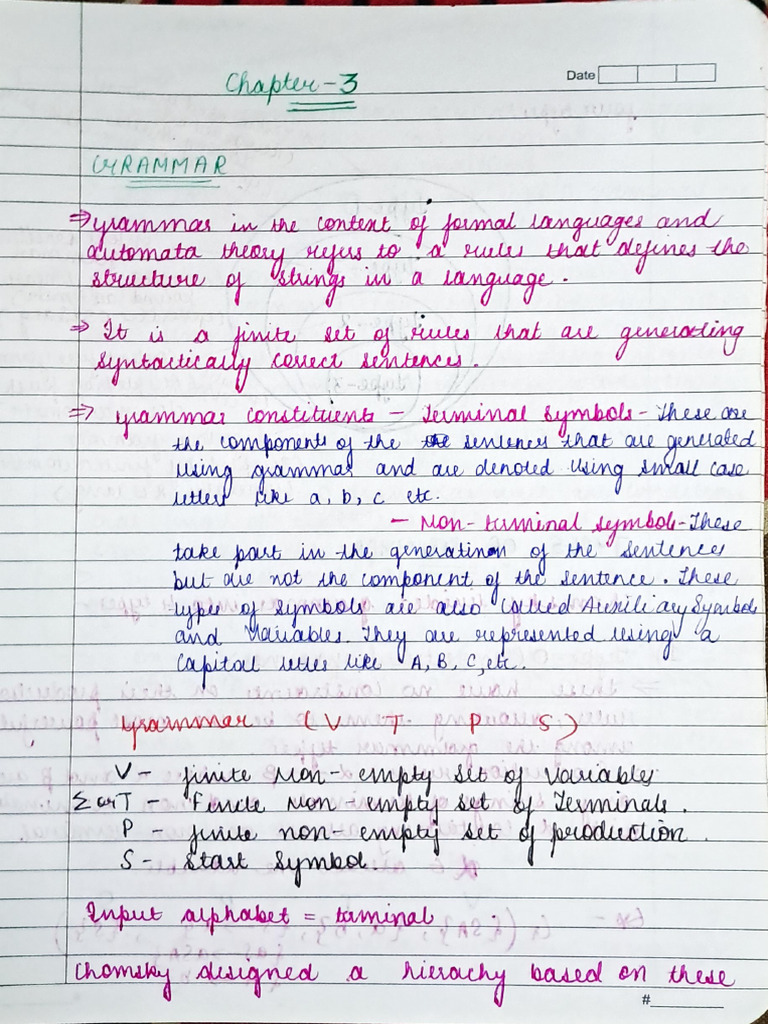 Chapter-3
Date
GRAMMAR
⇒ grammar in the context of formal languages and
automata theory refers to a rules that defines the
structure of strings in a language.
⇒ It is a finite set of rules that are generating
syntactically correct sentences.
⇒ grammar constituents - Terminal symbols - These are
the components of the sentences that are generated
using grammar and are denoted using small case
letters like a, b, c etc.
- Non-terminal symbol - These
take part in the generation of the sentences
but are not the component of the sentence. These
types of symbols are also called Auxiliary Symbols
and Variables. They are represented using a
capital letter like A, B, C, etc.
grammar (V T P S)
V - finite Non-empty set of Variables
Σ or T - Finite Non-empty set of Terminals.
P - finite non-empty set of production.
S - Start Symbol.
Input alphabet = terminal
Chomsky designed a hierachy based on these
#